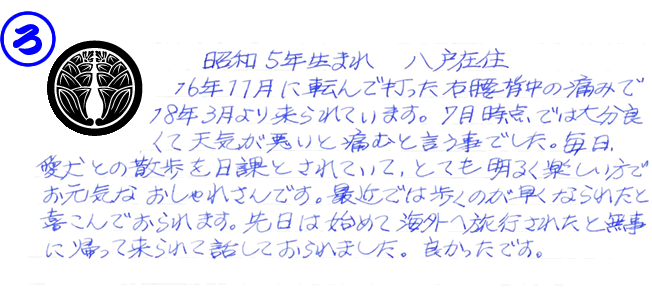 ろ
昭和5年生まれ 八戸在住
16年11月に転んで打った右腰背中の痛みで
18年3月より来られています。7月時点では大分良
くて天気が悪いと痛むと言う事でした。毎日、
愛犬との散歩を日課とされていて、とても明るく楽しい方で
お元気なおしゃれさんです。最近では歩くのが早くなられたと
喜こんでおられます。先日は始めて海外へ旅行されたと無事
に帰って来られて話しておられました。良かったです。